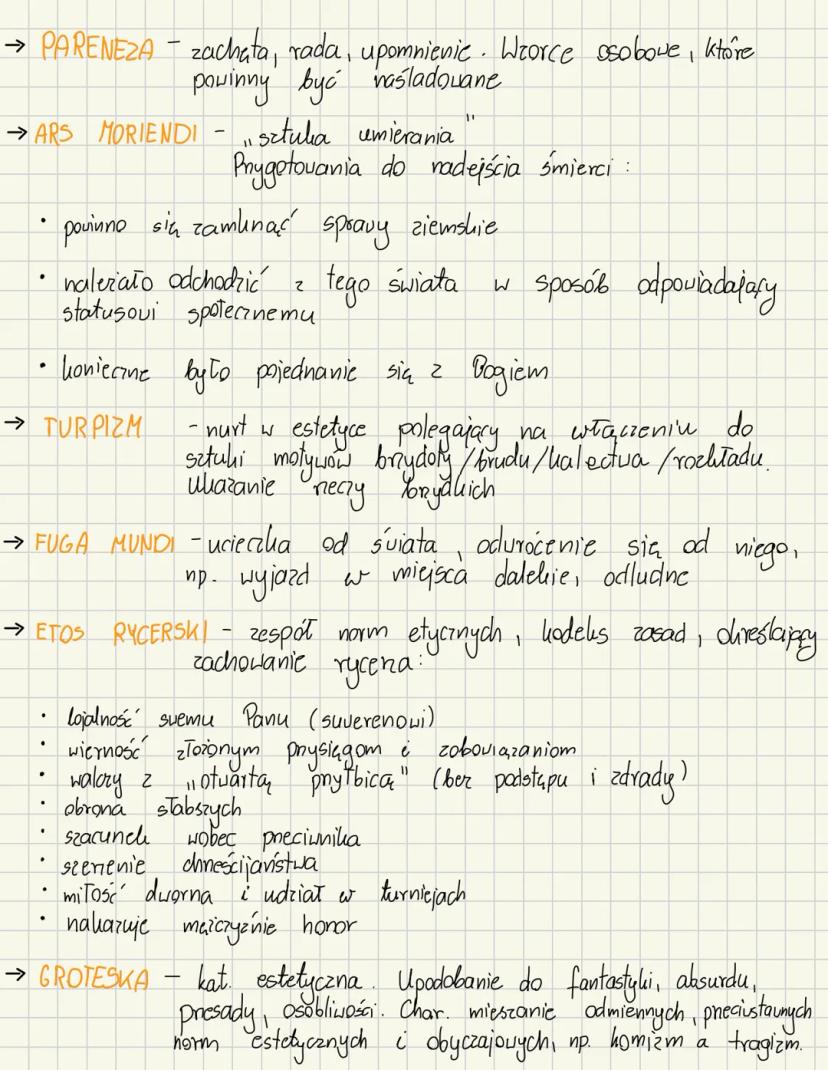 → PARENEZA – zachęta, rada, upomnienie. Wzorce osobowe, które
powinny być naśladowane
→ ARS MORIENDI – „sztuka umierania"
Przygotowania do nadejścia śmierci:
• powinno się zamknąć sprawy ziemskie
• należało odchodzić z tego świata w sposób odpowiadający
statusowi społecznemu
• konieczne było pojednanie się z Bogiem
→ TURPIZM - nurt w estetyce polegający na włączeniu do
sztuki motywów brzydoty/brudu/kalectwa/rozkładu.
Ukazanie rzeczy brzydkich
→ FUGA MUNDI - ucieczka od świata, odwrócenie się od niego,
np. wyjazd w miejsca dalekie, odludne
→ ETOS RYCERSKI - zespół norm etycznych, kodeks zasad, określający
zachowanie rycerza:
• lojalność swemu Panu (suwerenowi)
• wierność złożonym przysięgom i zobowiązaniom
• walczy z „otwartą przyłbicą" (bez podstępu i zdrady)
• obrona słabszych
• szacunek wobec przeciwnika
• szerzenie chrześcijaństwa
• miłość dworna i udział w turniejach
• nakazuje mężczyźnie honor
→ GROTESKA – kat. estetyczna. Upodobanie do fantastyki, absurdu,
przesady, osobliwości. Char. mieszanie odmiennych, przeciwstawnych
norm estetycznych i obyczajowych, np. komizm a tragizm.